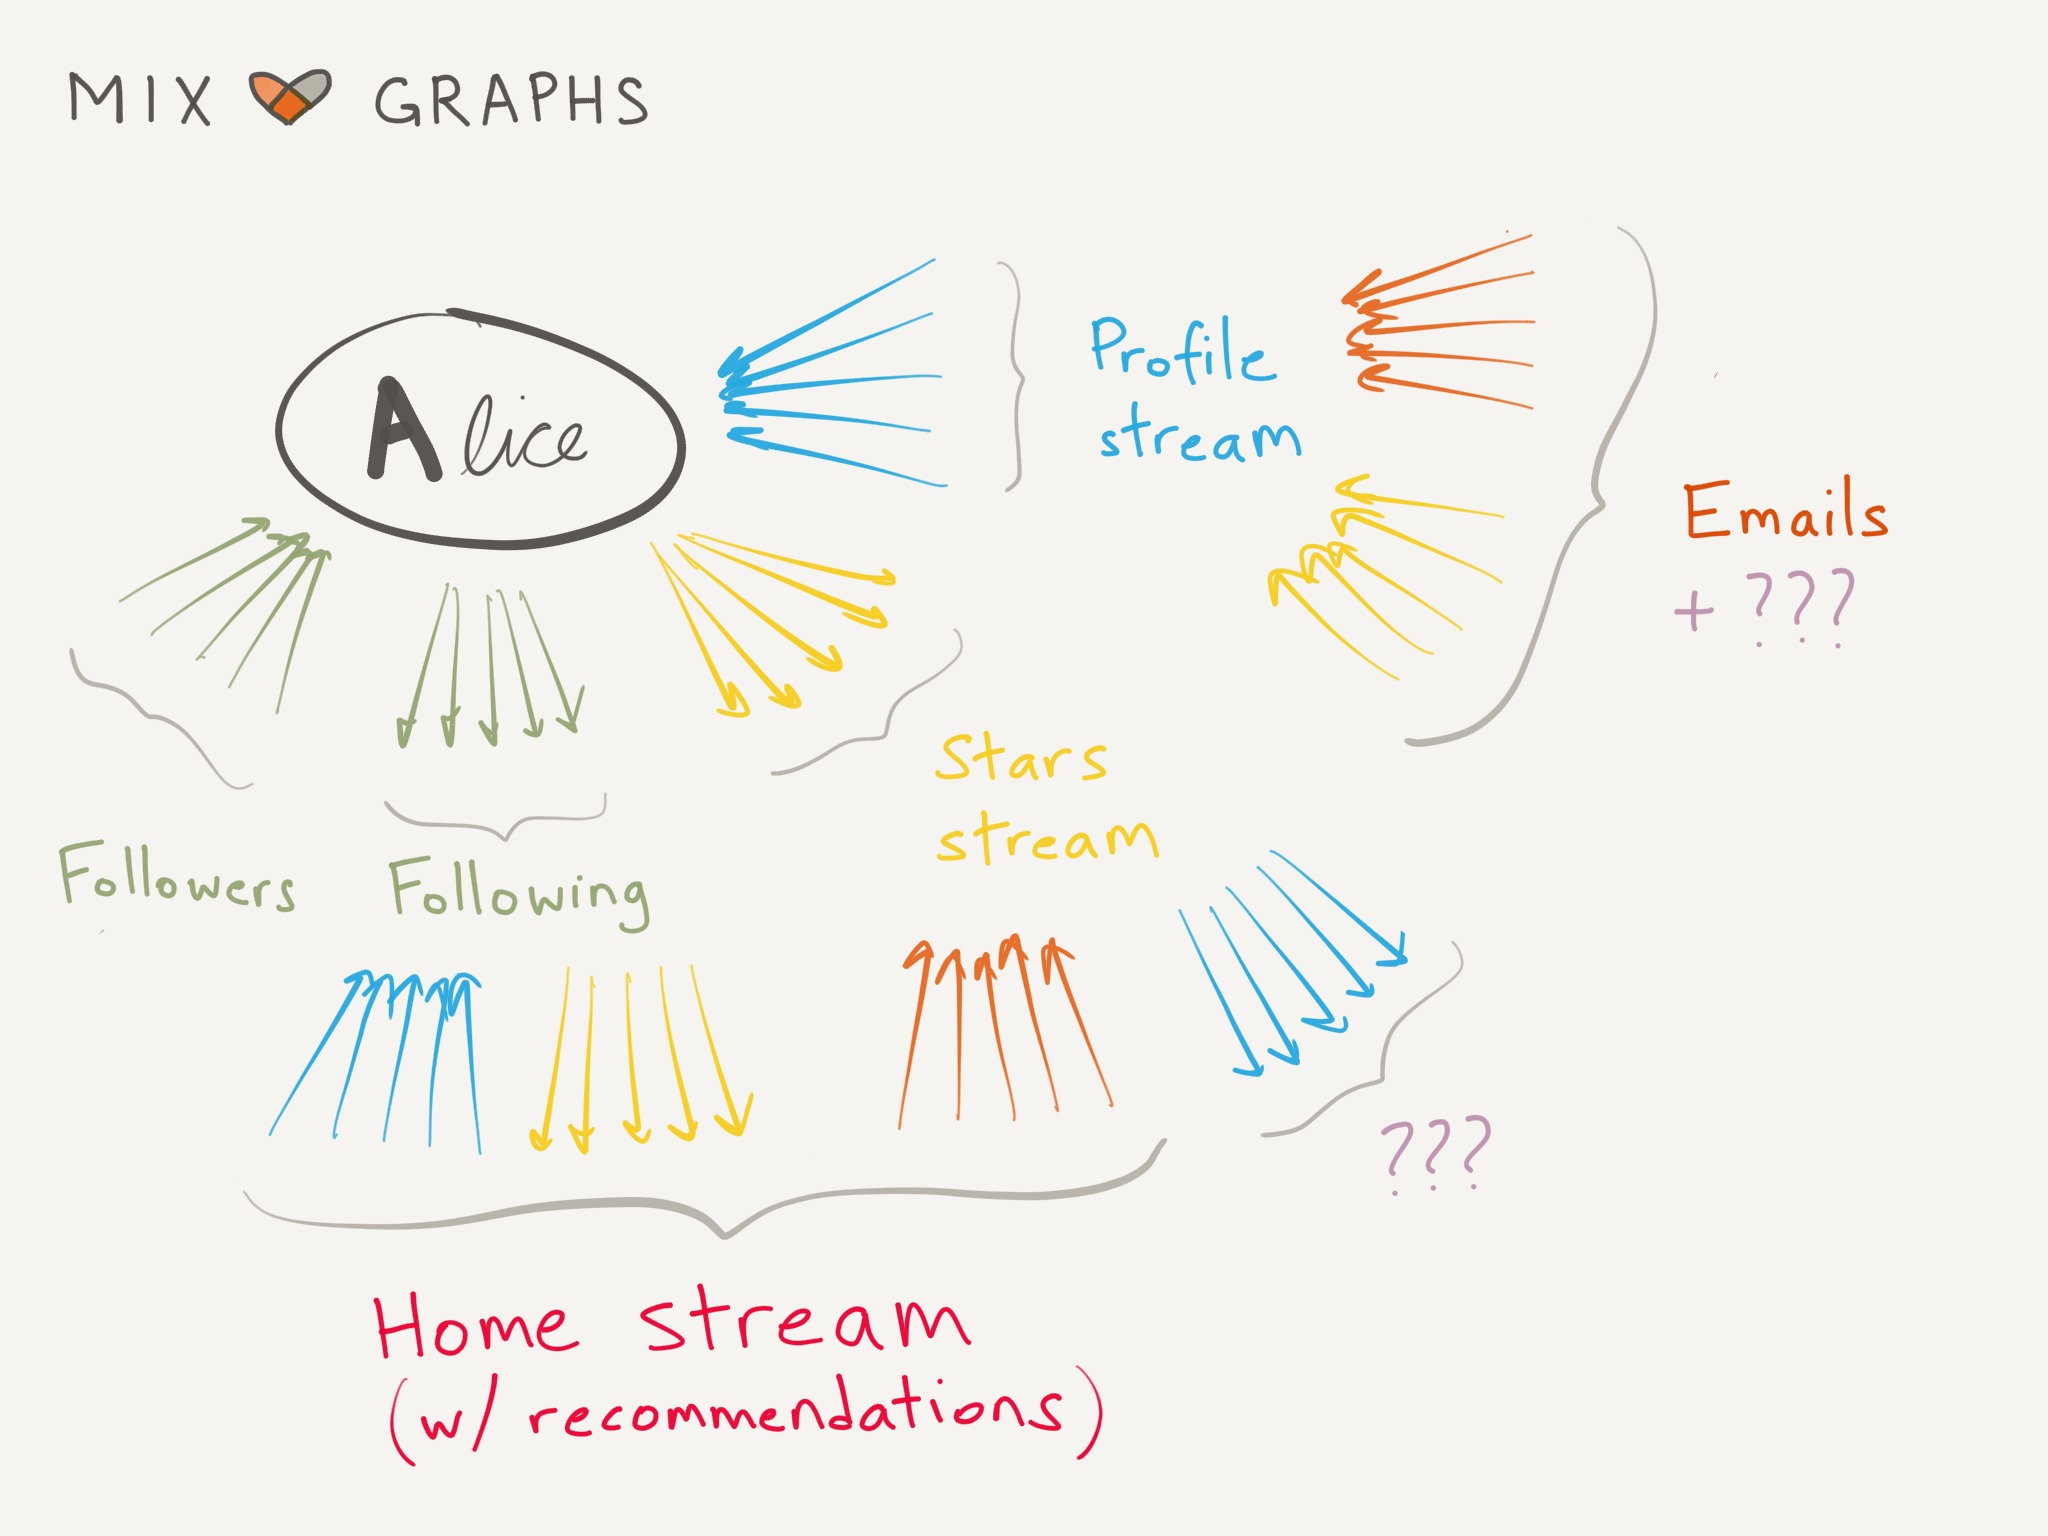 MIX GRAPHS
Alice
Profile
stream
Emails
+ ???
Stars
stream
Followers
Following
???
Home stream
(w/ recommendations)